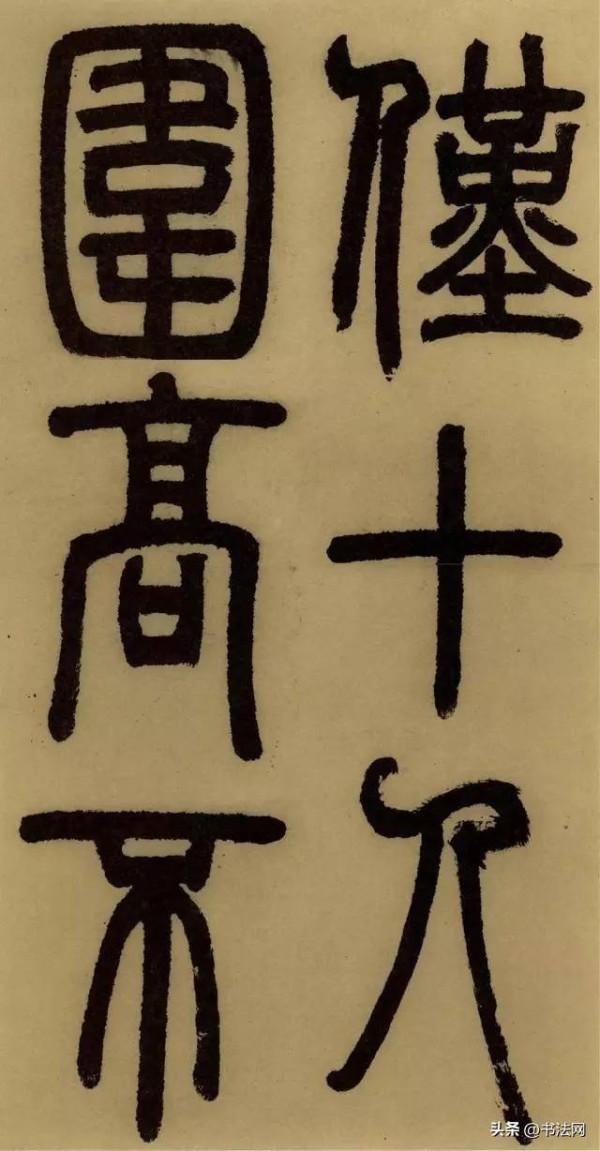 僅十人
圍高不
头条 @书法网